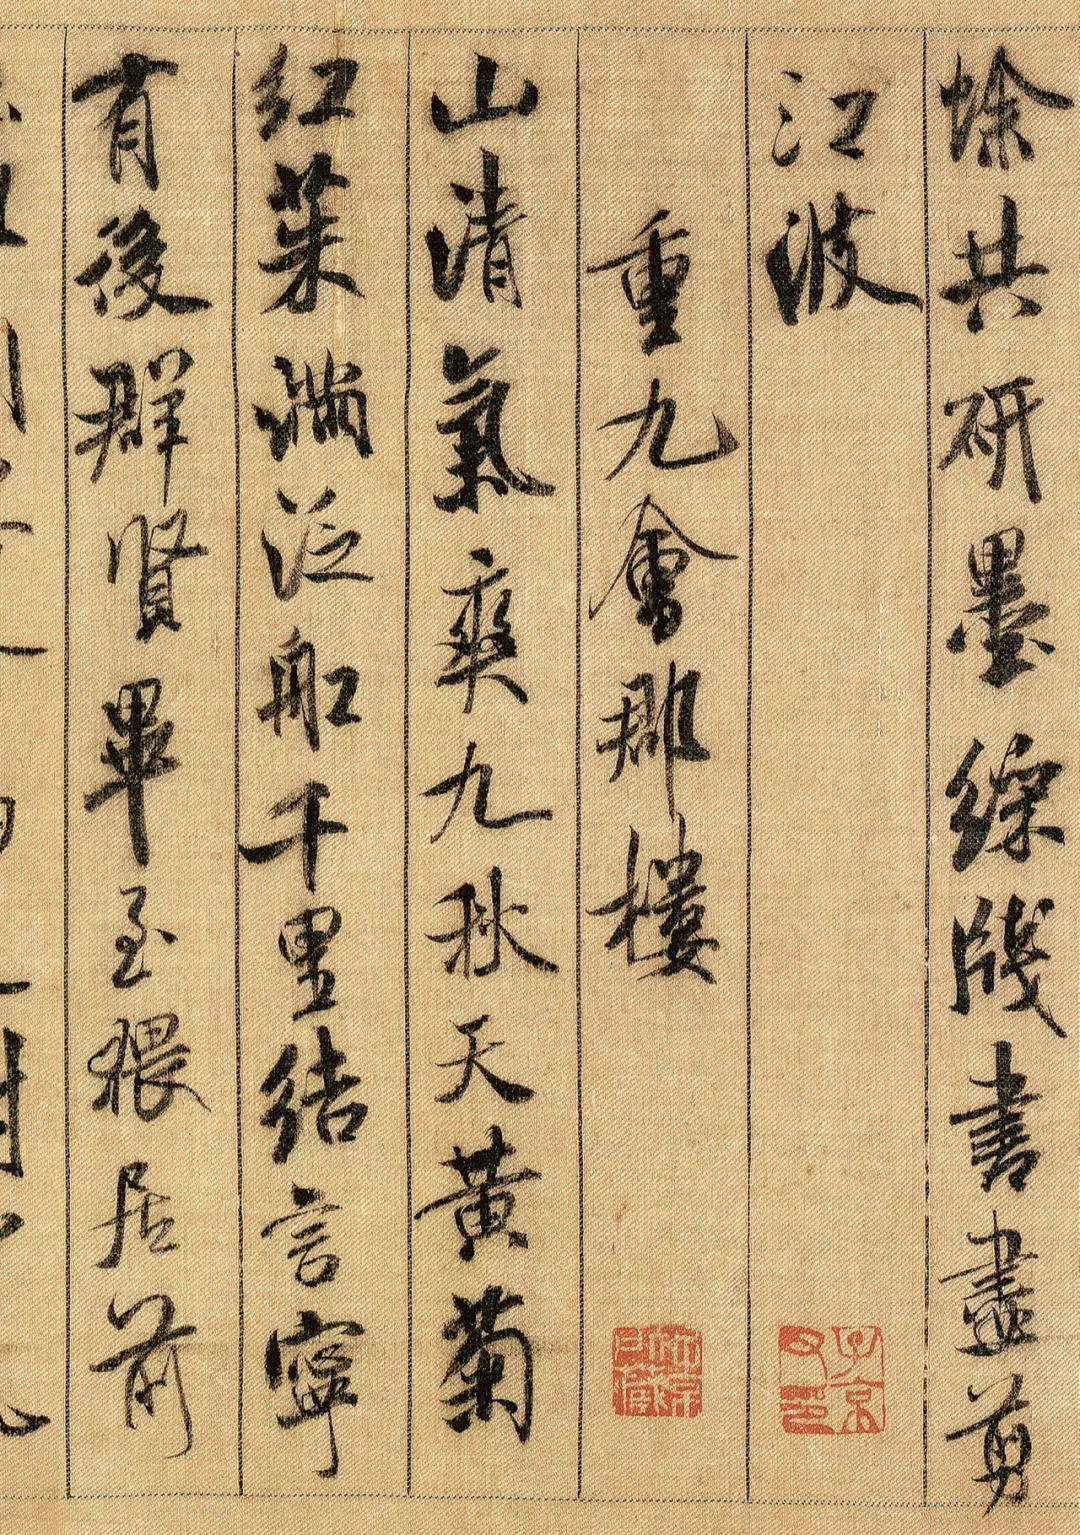 蜍共研墨綵牋書盡剪
江波
子京父印
重九會郡樓
山清氣爽九秋天黃菊
紅茱滿泛船千里結言寧
有後群賢畢至猥居前